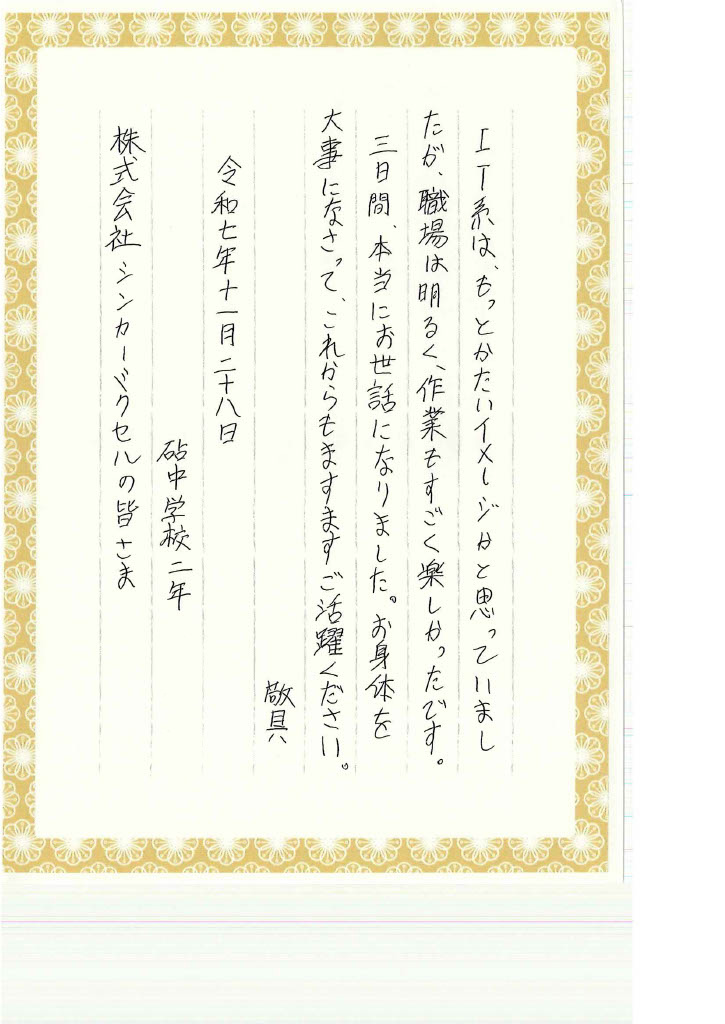 IT系は、もっとかたいイメージかと思っていまし
たが、職場は明るく、作業もすごく楽しかったです。
三日間、本当にお世話になりました。お身体を
大事になさって、これからもますますご活躍ください。
敬具
令和七年十一月二十八日
砧中学校二年
株式会社シンカーバクセルの皆さま